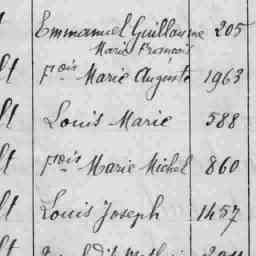 Emmanuel Guillaume 205
Marie François
lt fois Marie Auguste 1963
lt Louis Marie 588
lt fois Marie Michel 860
lt Louis Joseph 1457